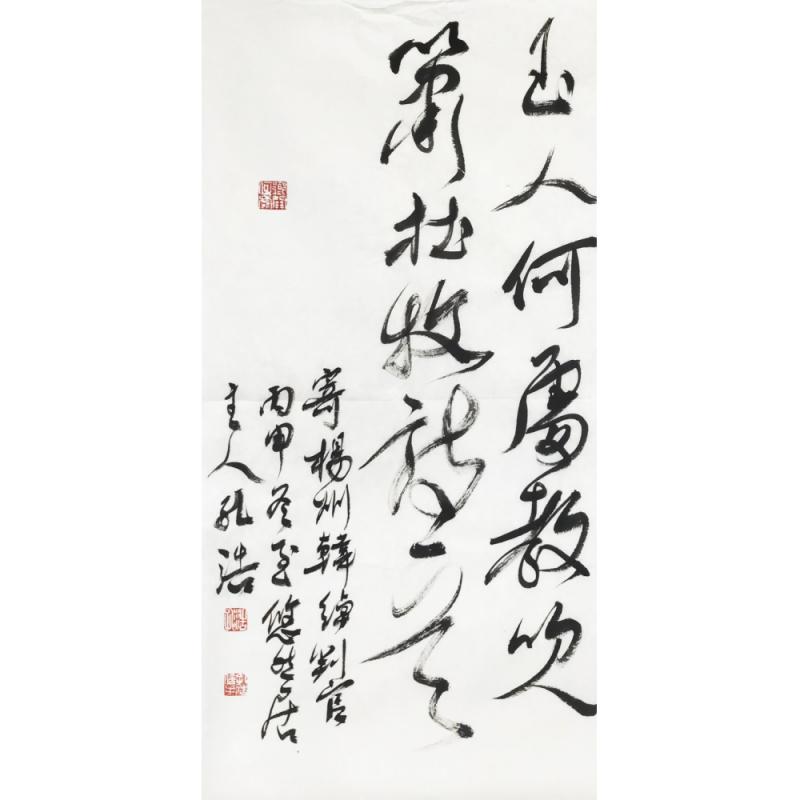 玉人何處教吹
簫杜牧詩一首
寄楊州韓綽判官
丙申冬至悠然居
主人孔浩